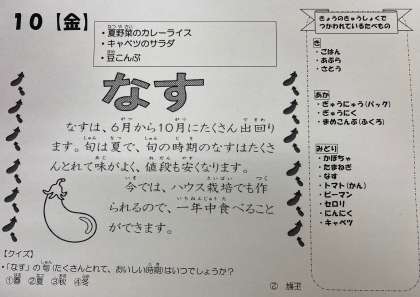 10【金】
・夏野菜のカレーライス
・キャベツのサラダ
・豆こんぶ
なす
なすは、6月から10月にたくさん出回り
ます。旬は夏で、旬の時期のなすはたくさ
んとれて味がよく、値段も安くなります。
今では、ハウス栽培でも作
られるので、一年中食べること
ができます。
【クイズ】
・「なす」の旬(たくさんとれて、おいしい時期)はいつでしょうか？
①春 ②夏 ③秋 ④冬
きょうのきゅうしょくで
つかわれているたべもの
き
・ごはん
・あぶら
・さとう
あか
・ぎゅうにゅう(パック)
・ぎゅうにく
・まめこんぶ(ふくろ)
みどり
・かぼちゃ
・たまねぎ
・なす
・トマト(かん)
・ピーマン
・セロリ
・にんにく
・キャベツ
②